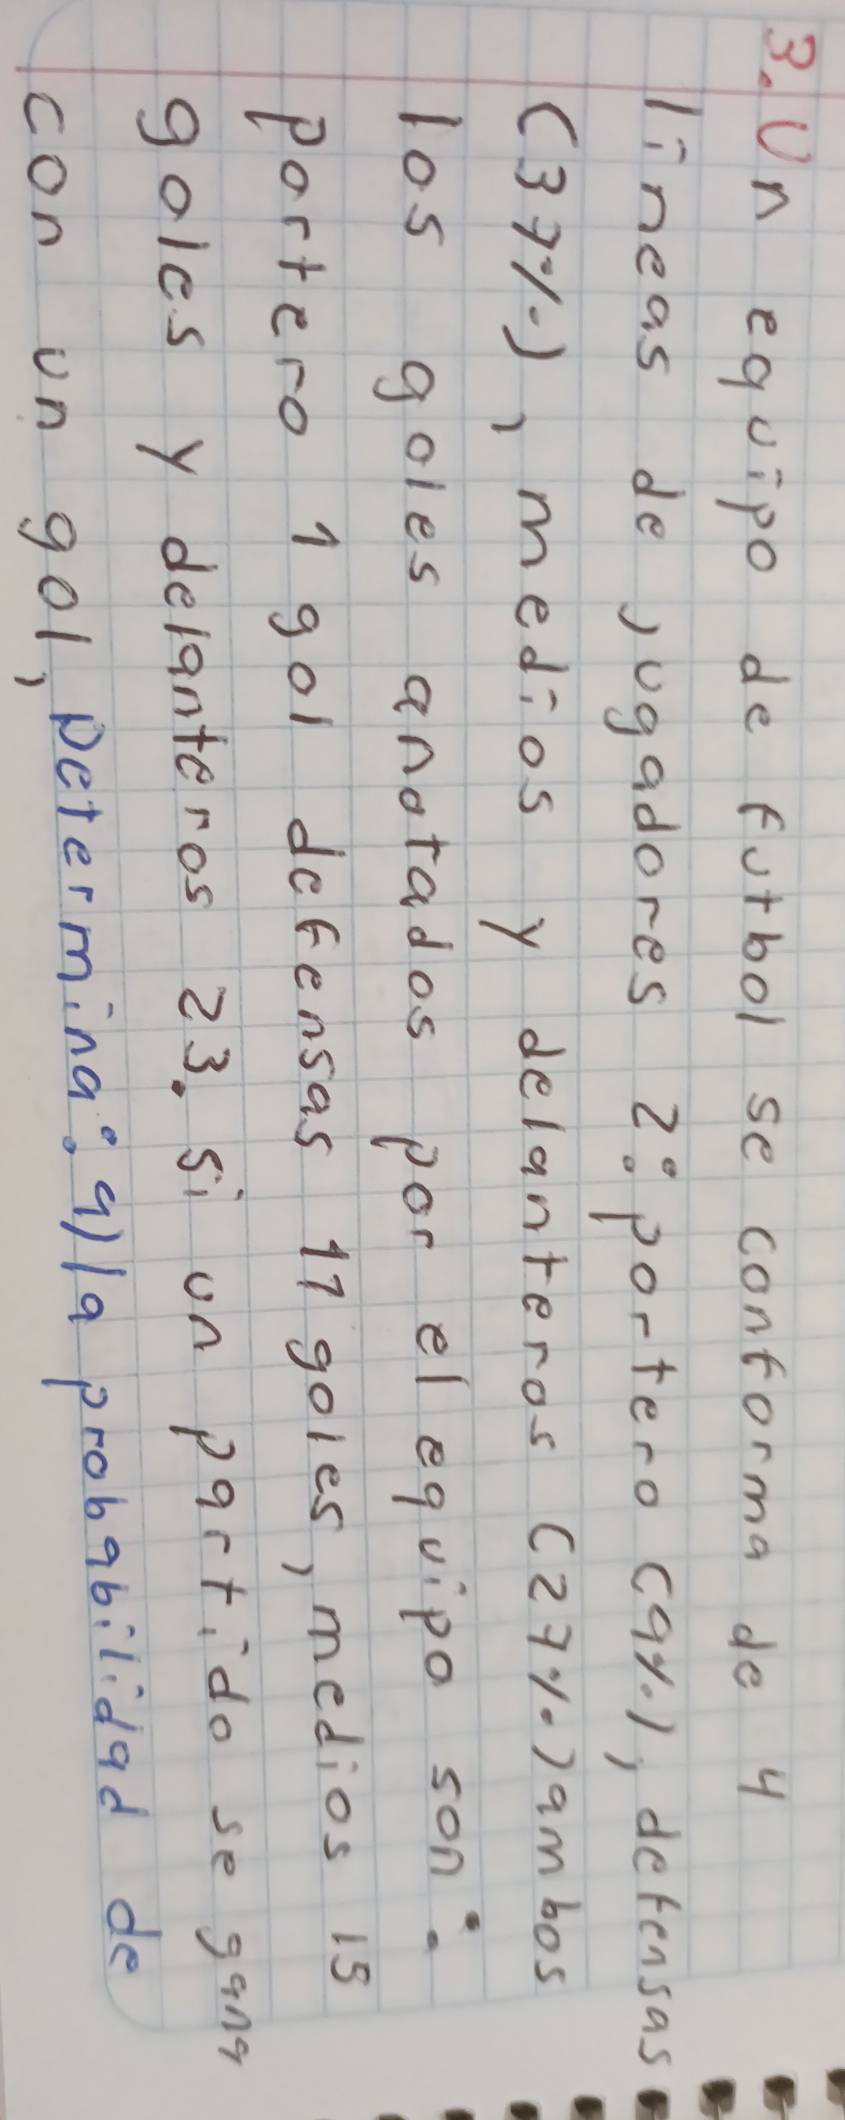 3. Un equipo de futbol se conforma de 4
líneas de jugadores 2: portero (9%), defensas
(37%), medios y delanteros (27%) ambos
los goles anotados por el equipo son:
portero 1 gol defensas 11 goles, medios 15
goles y delanteros 23. si un partido se gana
con un gol, Determina: a) la probabilidad de